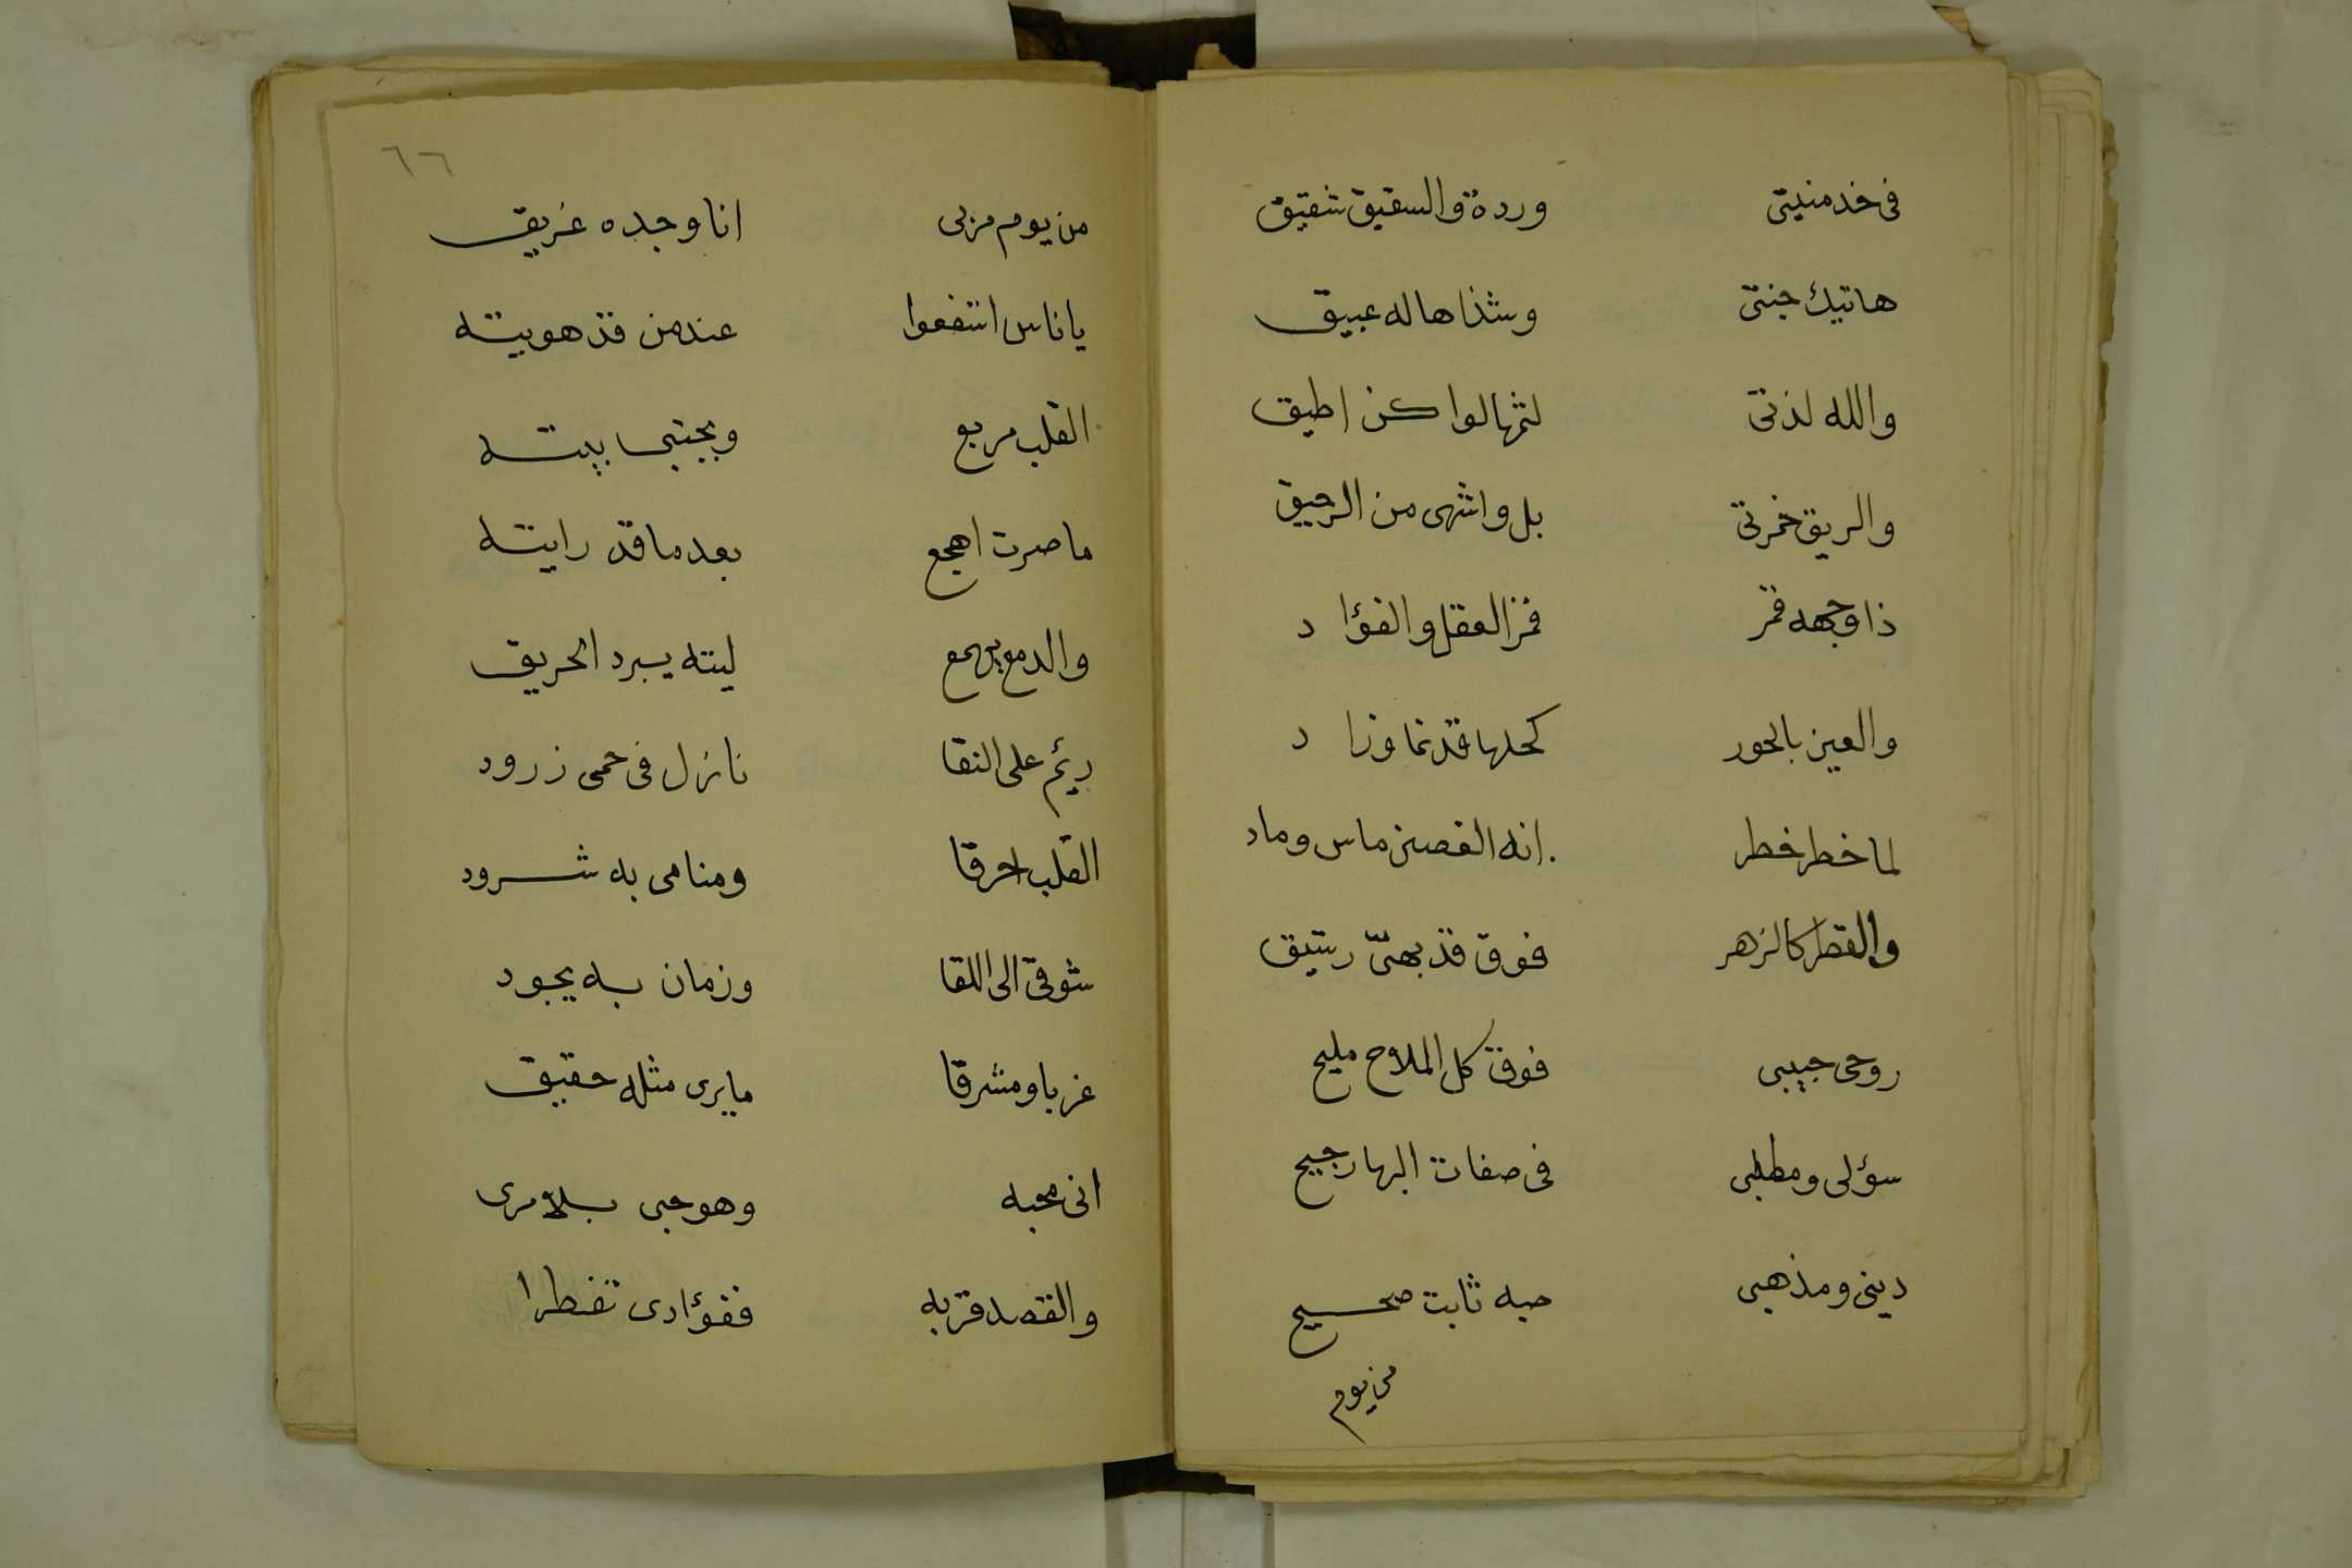 فى خد منيتى وردة والسقيق شقيق
هاتيك جنتى وشذاها له عبيق
والله لذتى لثمها لوا كن اطيق
والريق خمرتى بل واشهى من الرحيق
ذا وجهه قمر قمر العقل والفؤاد
والعين بالحور كحلها قد نما وزاد
لما خطر خطر انه الغصن ماس وماد
والقطر كالزهر فوق قد بهى رشيق
روحى حبيبى فوق كل الملاح مليح
سؤلى ومطلبى فى صفات البها رجيح
دينى ومذهبى حبه ثابت صحيح
من يوم
٦٦
من يوم مر بى انا وجده غريق
يا ناس اشفعوا عند من قد هويته
القلب مربع وبجنبى بيته
ما صرت اهجع بعد ما قد رايته
والدمع يهمع ليته يبرد الحريق
ريم على النقا نازل فى حمى زرود
القلب احرقا ومنامى به شرود
شوقى الى اللقا وزمان به يجود
غربا ومشرقا ما يرى مثله حقيق
انى محبه وهو حبى بلا مرى
والقصد قربه ففؤادى تفطرا